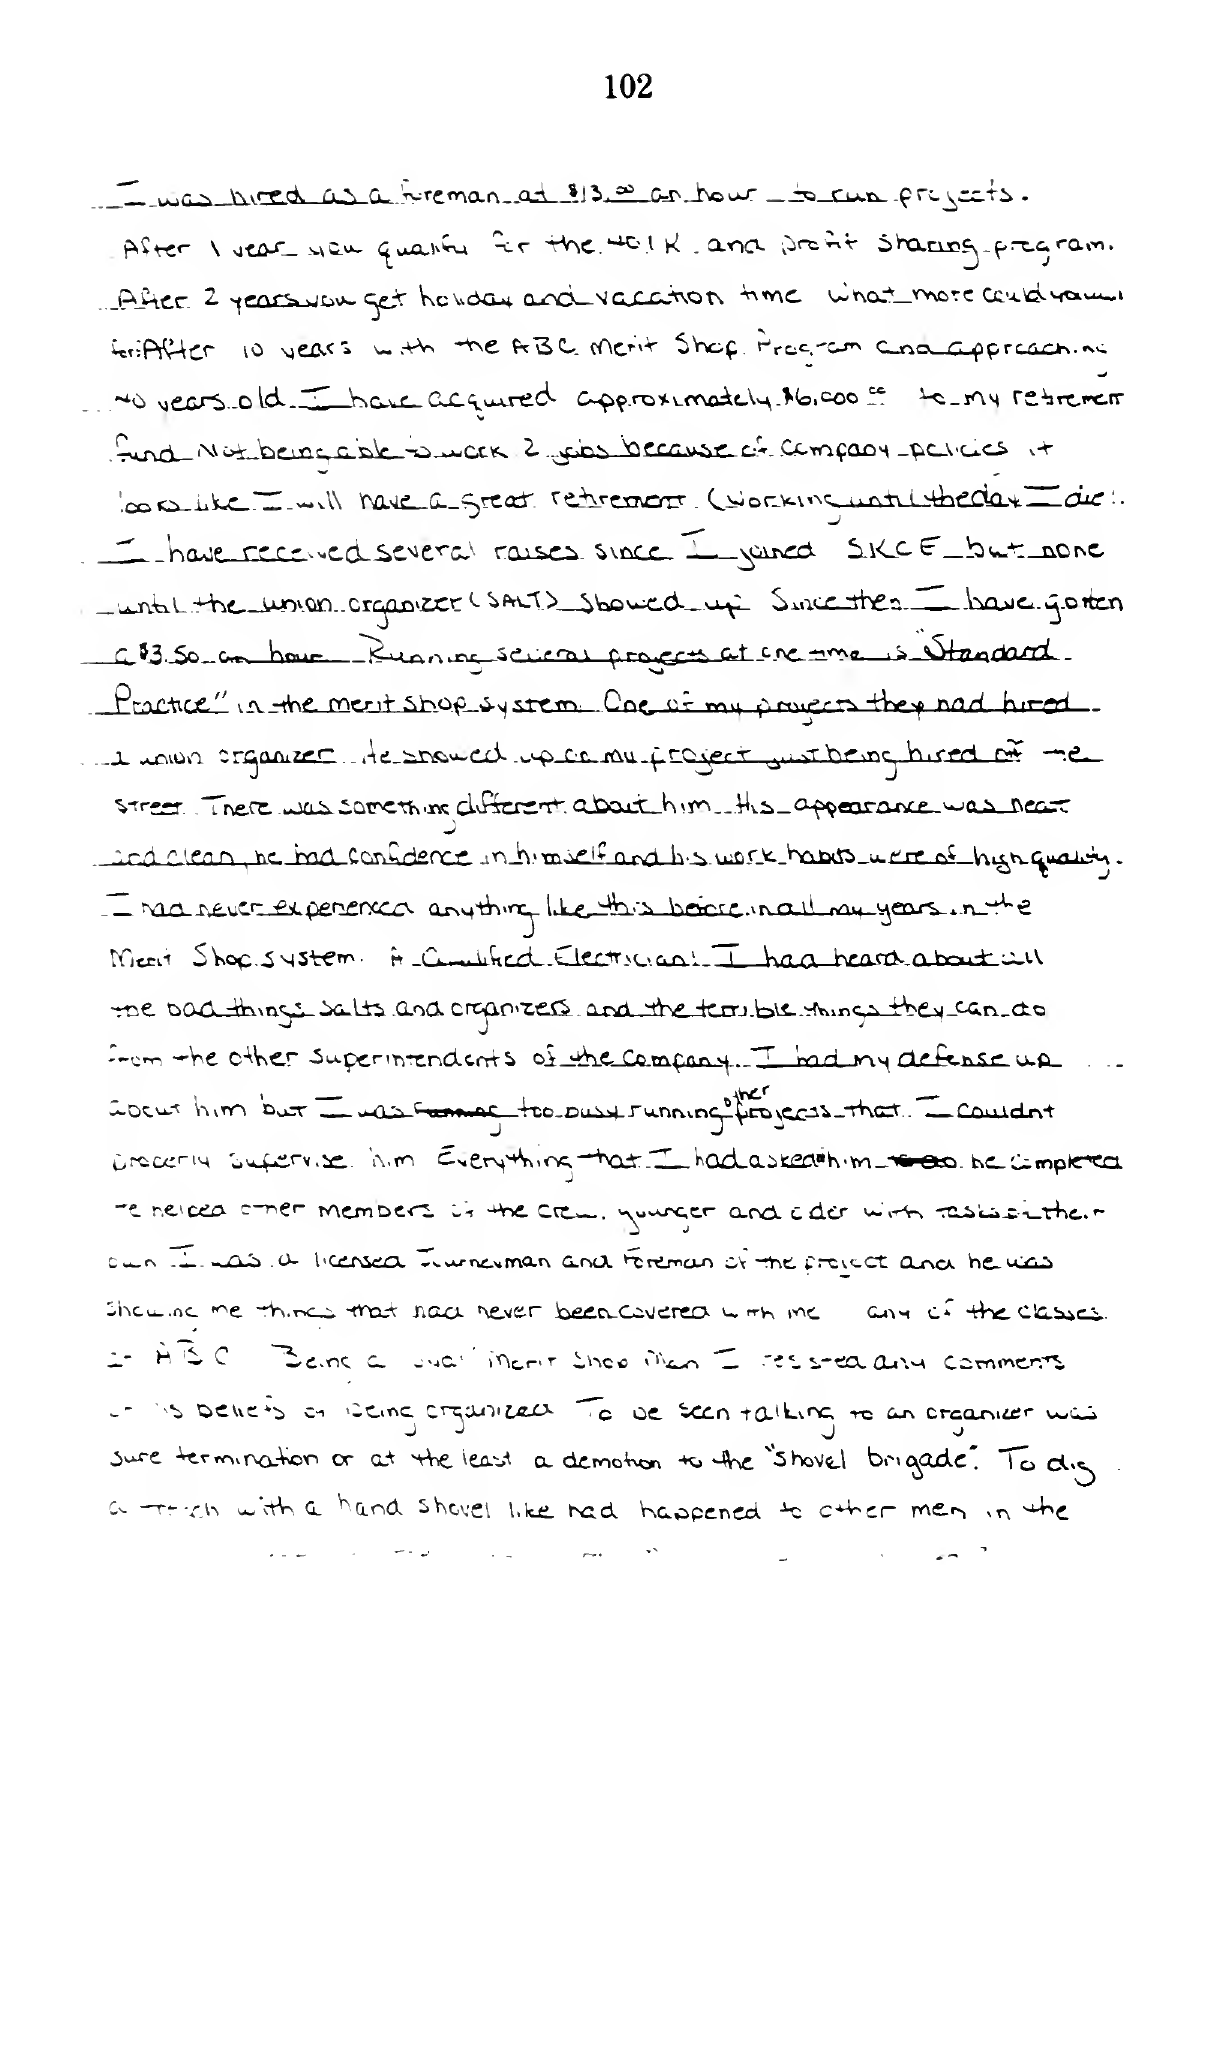 102
I was hired as a foreman at $13.00 an hour to run projects.
After 1 year you qualify for the 401K and profit sharing program.
After 2 years you get holiday and vacation time What more could you
for. After 10 years with the ABC Merit Shop Program and approaching
40 years old I have acquired approximately $6,000.00 to my retirement
fund Not being able to work 2 jobs because of company policies it
looks like I will have a great retirement (Working until the day I die!.
I have received several raises since I joined SKCE but none
until the union organizer (SALT) showed up Since then I have gotten
a $3.50 an hour Running several projects at one time is "Standard
Practice" in the merit shop system. One of my projects they had hired
a union organizer He showed up on my project just being hired off the
street. There was something different about him. His appearance was neat
and clean, he had confidence in himself and his work habits were of high quality.
I had never experienced anything like this before in all my years in the
Merit Shop system. A Qualified Electrician! I had heard about all
the bad things salts and organizers and the terrible things they can do
from the other Superintendents of the company. I had my defense up
about him but I was running too busy running other projects that I couldnt
properly supervise him Everything that I had asked him to do he completed
He helped other members of the crew, younger and older with tasks of their
own I was a licensed Journeyman and Foreman of the project and he was
showing me things that had never been covered with me any of the classes
of ABC Being a loyal Merit Shop Man I resisted any comments
or his beliefs of being organized To be seen talking to an organizer was
sure termination or at the least a demotion to the "shovel brigade". To dig
a trench with a hand shovel like had happened to other men in the